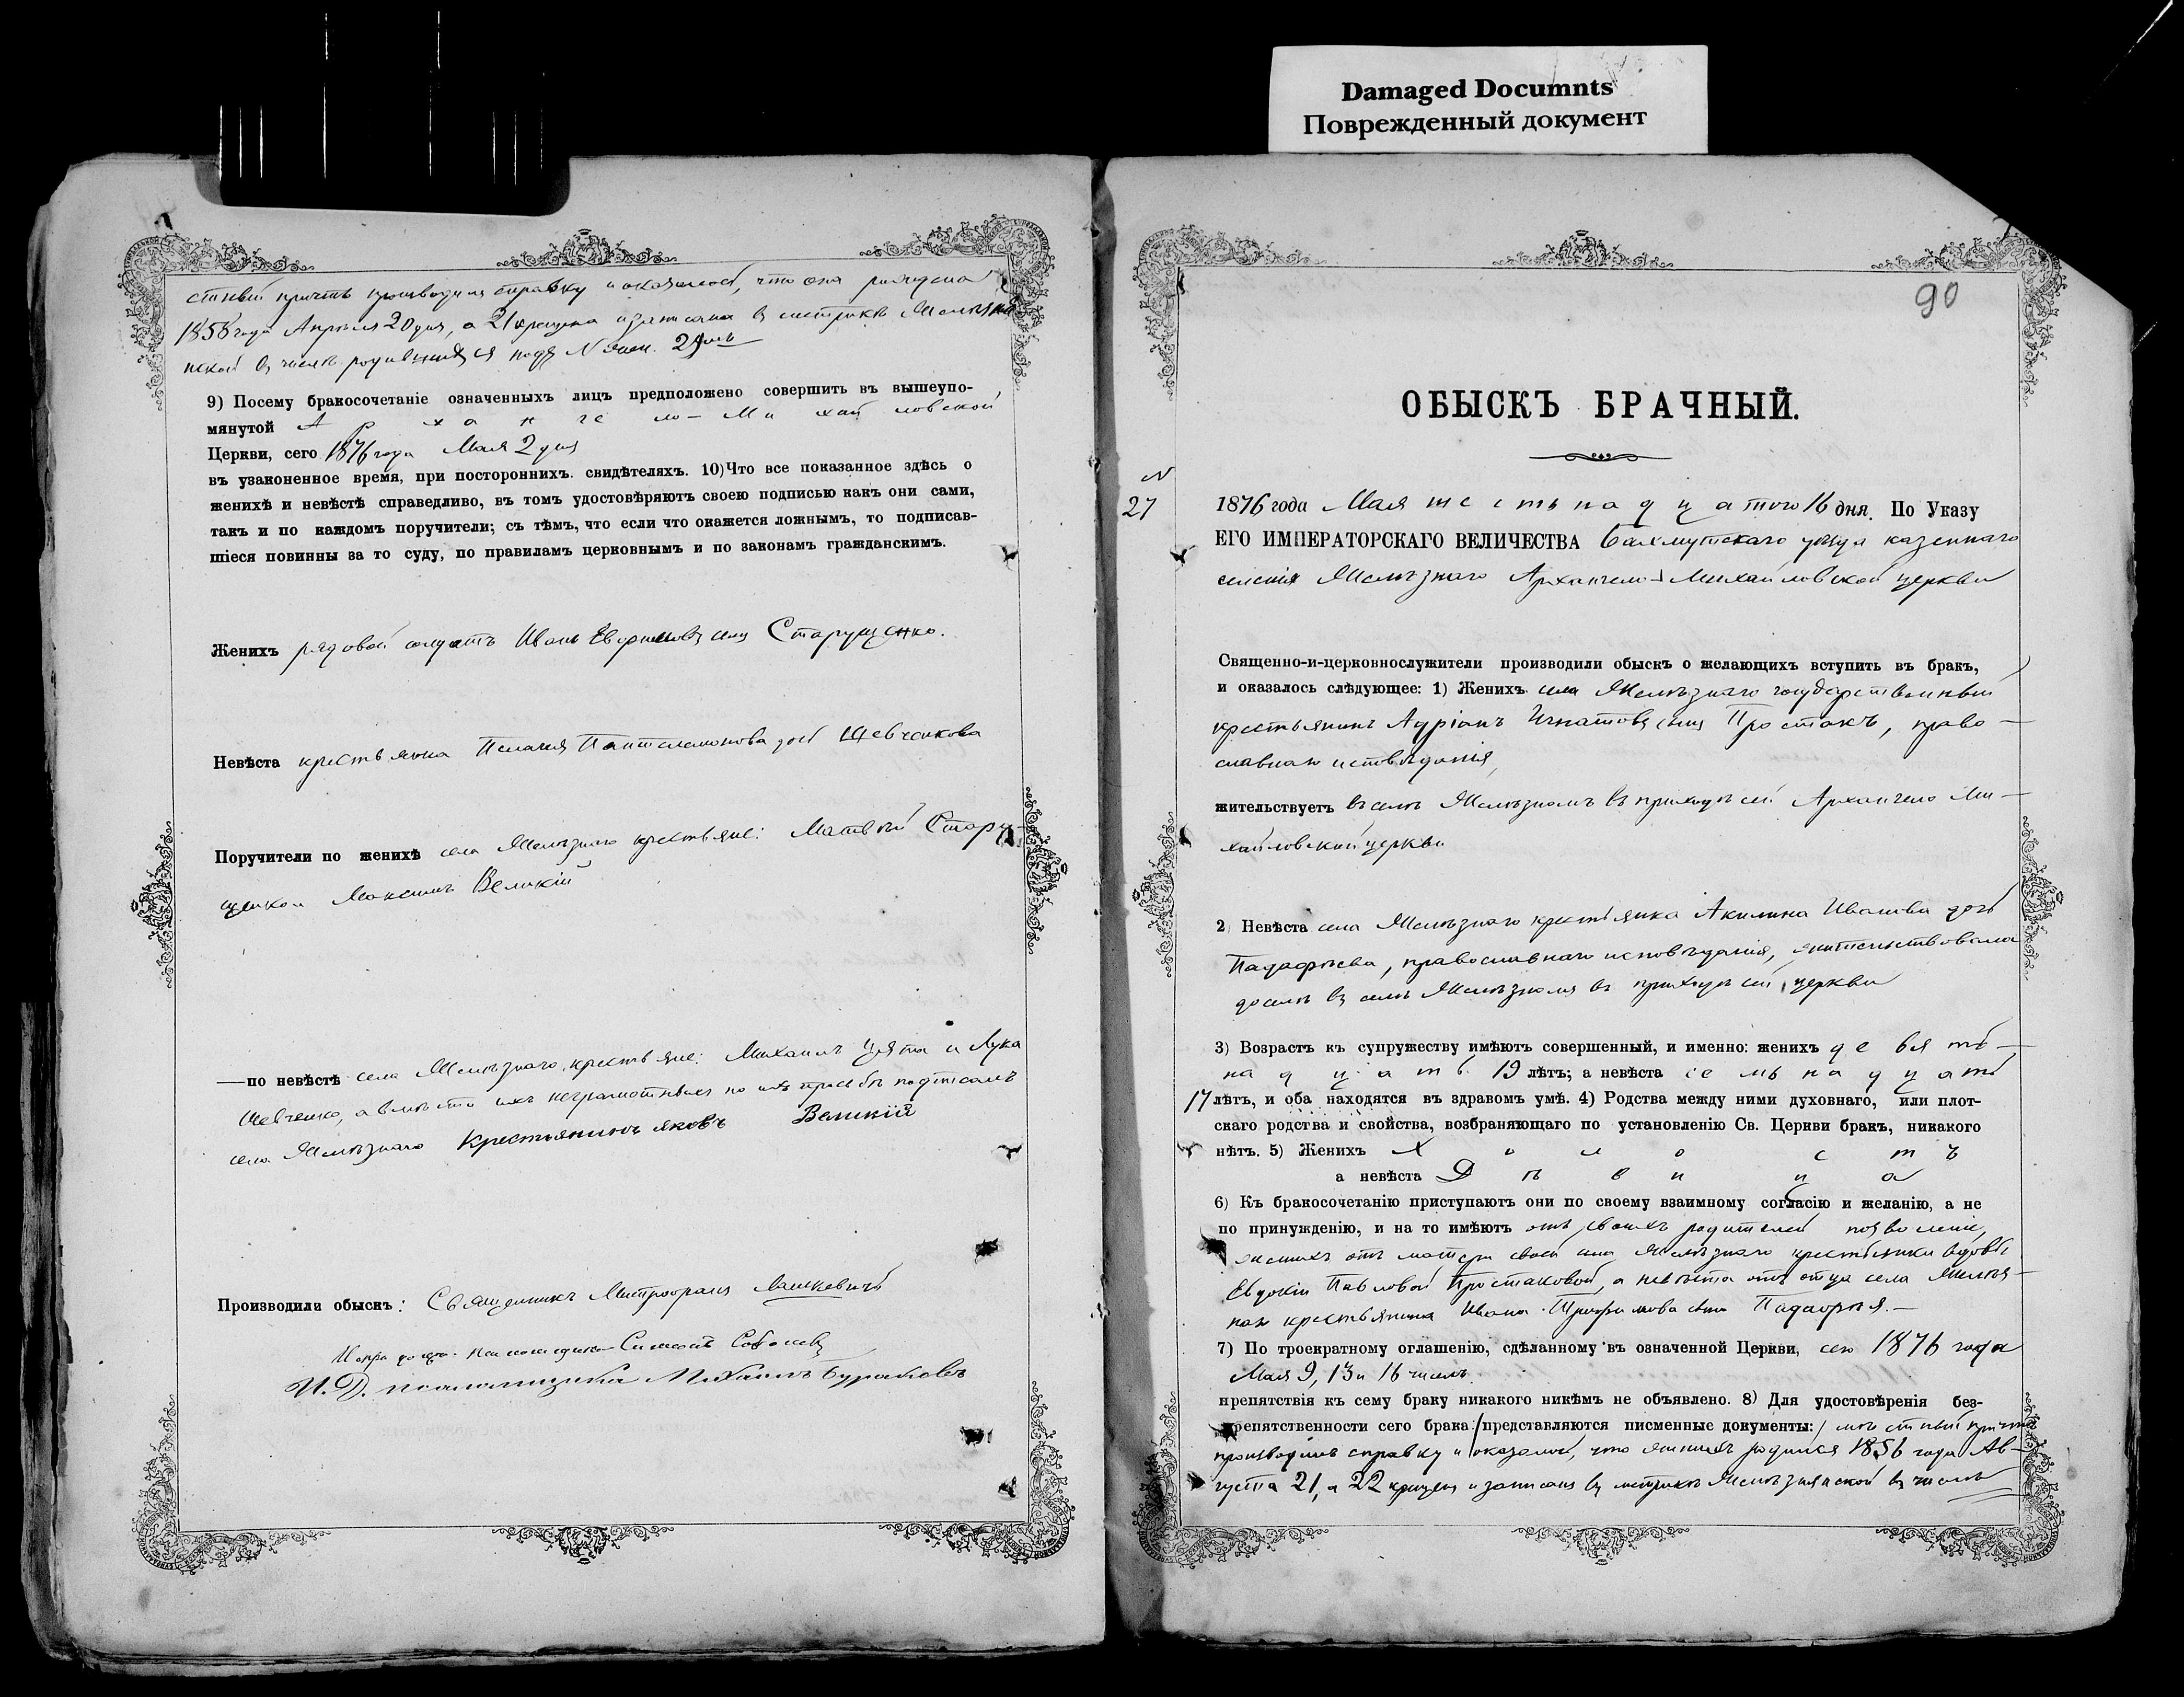 Damaged Documnts
Поврежденный документ
стный причтъ производилъ справку и оказалось, что она рождена
1858 года Апрѣля 20 дня, а 21 крещена и записана въ метрикѣ Желѣзня
нской въ числѣ родившихся подъ N жен. 29мъ
9) Посему бракосочетаніе означенныхъ лицъ предположено совершить въ вышеупо-
мянутой Архангело-Михайловской
Церкви, сего 1876 года Мая 2 дня
въ узаконенное время, при постороннихъ свидѣтеляхъ. 10) Что все показанное здѣсь о
женихѣ и невѣстѣ справедливо, въ томъ удостовѣряютъ своею подписью какъ они сами,
такъ и по каждомъ поручители; съ тѣмъ, что если что окажется ложнымъ, то подписав-
шіеся повинны за то суду, по правиламъ церковнымъ и по законамъ гражданскимъ.
Женихъ рядовой солдатъ Иванъ Ефимовъ сынъ Старущенко.
Невѣста крестьянка Пелагія Пантелемонова дочь Шевченкова
Поручители по женихѣ села Желѣзнаго крестьяне: Матвѣй Стару-
щенко и Максимъ Великій
— по невѣстѣ села Желѣзнаго крестьяне: Михаилъ и Лука
Шевченко, а вмѣсто ихъ неграмотныхъ по ихъ просьбѣ подписалъ
села Желѣзнаго Крестьянинъ яковъ Великій
Производили обыскъ: Священникъ Митрофанъ Лашкевичъ
Симеонъ Соболевъ
И. Д. псаломщика Михаилъ Бураковъ
90
ОБЫСКЪ БРАЧНЫЙ.
N
27
1876 года Мая шестьнадцатого 16 дня. По Указу
ЕГО ИМПЕРАТОРСКАГО ВЕЛИЧЕСТВА Бахмутскаго уѣзда казеннаго
селенія Желѣзнаго Архангело-Михайловской церкви
Священно-и-церковнослужители производили обыскъ о желающихъ вступить въ бракъ,
и оказалось слѣдующее: 1) Женихъ села Желѣзнаго государственный
крестьянинъ Адріанъ Игнатовъ сынъ Простакъ, право-
славнаго исповѣданія,
жительствуетъ въ селѣ Желѣзномъ въ приходѣ сей Архангело Ми-
хайловской церкви
2) Невѣста села Желѣзнаго крестьянка Акилина Иванова дочь
Падафѣева, православнаго исповѣданія, жительствовала
доселѣ въ селѣ Желѣзномъ въ приходѣ сей церкви
3) Возрастъ къ супружеству имѣютъ совершенный, и именно: женихъ девять-
надцать 19 лѣтъ; а невѣста семьнадцать
17 лѣтъ, и оба находятся въ здравомъ умѣ. 4) Родства между ними духовнаго, или плот-
скаго родства и свойства, возбраняющаго по установленію Св. Церкви бракъ, никакого
нѣтъ. 5) Женихъ Холостъ
а невѣста Дѣвица
6) Къ бракосочетанію приступаютъ они по своему взаимному согласію и желанію, а не
по принужденію, и на то имѣютъ отъ своихъ родителей позволеніе,
женихъ отъ матери своей села Желѣзнаго крестьянки вдовы
Евдокіи Павловой Простаковой, а невѣста отъ отца села Желѣз-
наго крестьянина Ивана Трофимова сына Падафѣя.—
7) По троекратному оглашенію, сдѣланному въ означенной Церкви, сего 1876 года
Мая 9, 13 и 16 чиселъ
препятствія къ сему браку никакого никѣмъ не объявлено. 8) Для удостовѣренія без-
препятственности сего брака представляются писменные документы: мѣстный причтъ
производилъ справку и оказалось, что женихъ родился 1856 года Ав-
густа 21, а 22 крещенъ и записанъ въ метрикѣ Желѣзнянской въ числѣ